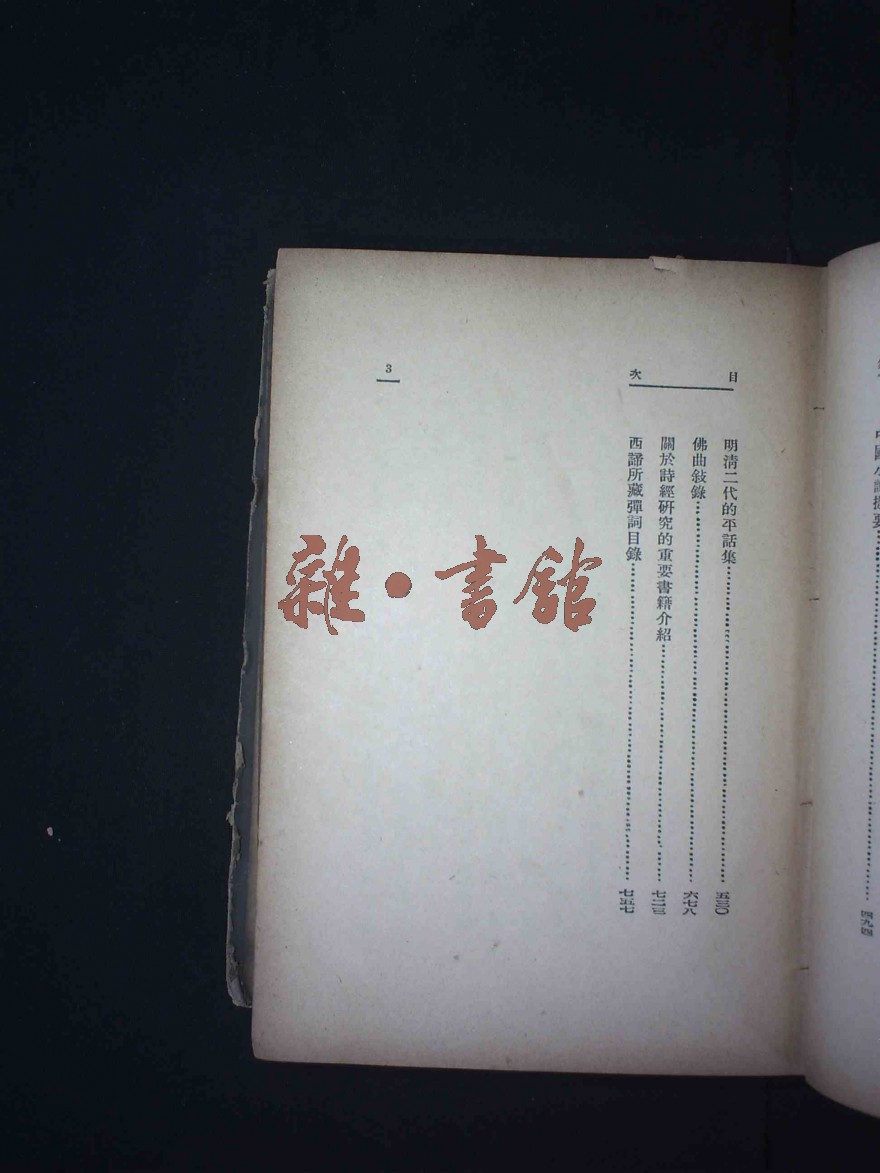 中國小說提要…………四九四
目次
明清二代的平話集…………五三〇
佛曲敍錄…………六七八
關於詩經研究的重要書籍介紹…………七二三
西諦所藏彈詞目錄…………七五七
3
雜·書館